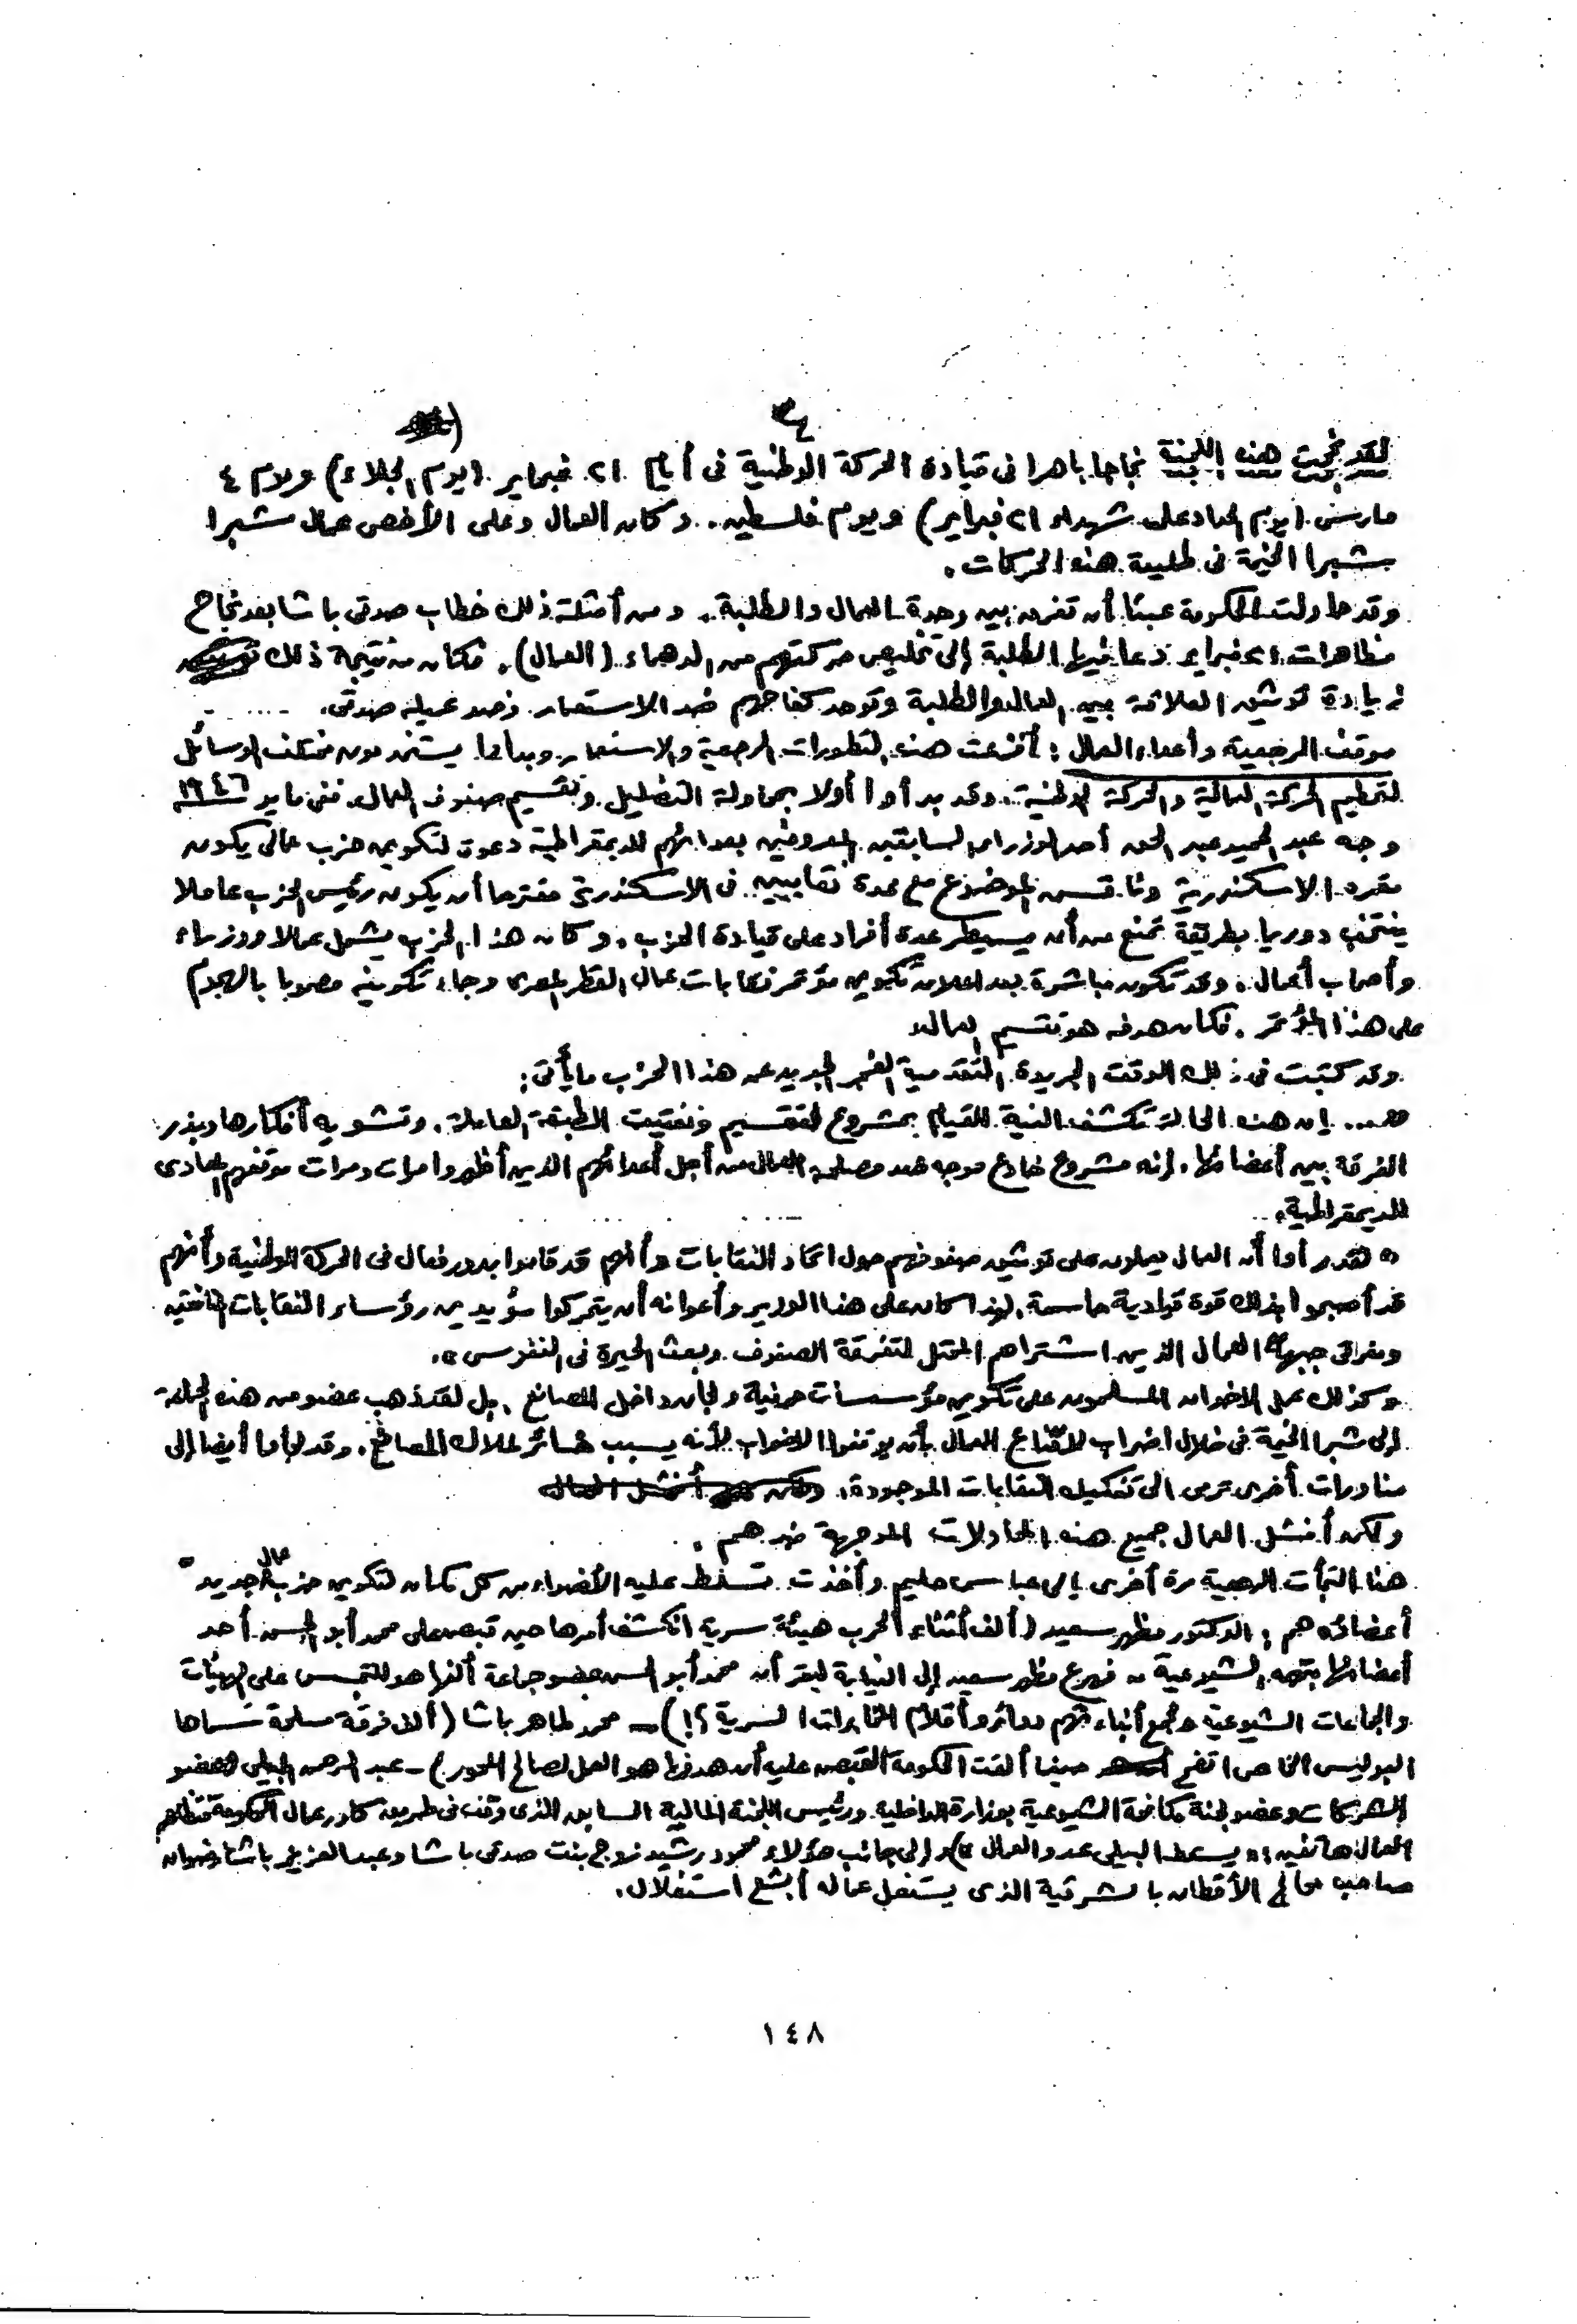 ٣٤
لقد نجحت هذه اللجنة نجاحا باهرا فى قيادة الحركة الوطنية فى أيام ٢١ فبراير (يوم الجلاء) ويوم ٤
مارس (يوم الحداد على شهداء ٢١ فبراير) ويوم فلسطين.. وكان العمال وعلى الأخص عمال شبرا
بشبرا الخيمة فى طليعة هذه الحركات.
وقد حاولت الحكومة عبثا أن تفرق بين وحدة العمال والطلبة.. ومن أمثلة ذلك خطاب صدقى باشا بعد نجاح
مظاهرات ٢١ فبراير دعا فيها الطلبة إلى تخليص حركتهم من الدهماء (العمال). فكان من نتيجة ذلك
زيادة توثيق العلاقة بين العمال والطلبة وتوحد كفاحهم ضد الاستعمار وضد عميله صدقى.
موقف الرجعية وأعداء العمال: أفزعت هذه التطورات الرجعية والاستعمار وبدأا يستخدمون مختلف الوسائل
لتحطيم الحركة العمالية والحركة الوطنية.. وقد بدأوا أولا بمحاولة التضليل وتقسيم صفوف العمال. ففى مايو ١٩٤٦
وجه عبد الحميد عبد الحق أحد الوزراء السابقين المعروفين بعدائهم للديمقراطية دعوة لتكوين حزب عمالى يكون
مقره الاسكندرية وناقش الموضوع مع عدة نقابيين فى الاسكندرية مقترحا أن يكون رئيس الحزب عاملا
ينتخب دوريا بطريقة تمنع من أن يسيطر عدة أفراد على قيادة الحزب. وكان هذا الحزب يشمل عمالا ووزراء
وأصحاب أعمال. وقد تكون مباشرة بعد اعلان تكوين مؤتمر نقابات عمال القطر المصرى وجاء تكوينه مصحوبا بالهجوم
على هذا المؤتمر. فكان هدفه هو تقسيم العمال.
وقد كتبت فى ذلك الوقت الجريدة التقدمية الفجر الجديد عن هذا الحزب ما يأتى:
«... إن هذه الحالة تكشف النية للقيام بمشروع لتقسيم وتفتيت الطبقة العاملة. وتشويه أفكارها وبذر
الفرقة بين أعضائها. إنه مشروع خادع موجه ضد مصلحة العمال من أجل أعدائهم الذين أظهروا مرات ومرات موقفهم المعادى
للديمقراطية.
« لقد رأوا أن العمال يعملون على توثيق صفوفهم حول اتحاد النقابات وأنهم قد قاموا بدور فعال فى الحركة الوطنية وأنهم
قد أصبحوا بذلك قوة قيادية حاسمة. لهذا كان على هذا الوزير وأعوانه أن يتحركوا مؤيدين من رؤساء النقابات الخائنين
ومفرقى جبهة العمال الذين اشتراهم المحتل لتفرقة الصفوف وبعث الحيرة فى النفوس».
وكذلك عمل الاخوان المسلمون على تكوين مؤسسات حرفية ولجان داخل المصانع. بل لقد ذهب عضو من هذه الجماعة
إلى شبرا الخيمة فى خلال اضراب لاقناع العمال بأن يوقفوا الاضراب لأنه يسبب خسائر لملاك المصانع. وقد لجأوا أيضا إلى
مناورات أخرى ترمى الى تفكيك النقابات الموجودة. ولكن أفشل العمال
ولكن أفشل العمال جميع هذه المحاولات الموجهة ضدهم.
هنا التجأت الرجعية مرة أخرى إلى عباس حليم وأخذت تسلط عليه الأضواء من كل مكان لتكوين حزب عمال جديد
أعضاؤه هم: الدكتور مظهر سعيد (ألف أثناء الحرب هيئة سرية انكشف أمرها حين قبض على محمد أبو الحسن أحد
أعضائها بتهمة الشيوعية فهرع مظهر سعيد إلى النيابة ليقر أن محمد أبو الحسن عضو جماعة ألفها هو للتجسس على الهيئات
والجماعات الشيوعية وجمع أنباء تهم دوائر وأقلام المخابرات السرية؟!) – محمد طاهر باشا (ألف فرقة مسلحة سماها
البوليس الخاص اتضح حينما ألقت الحكومة القبض عليه أن هدفها هو العمل لصالح المحور) – عبد الرحمن البيلى (عضو
الشركات وعضو لجنة مكافحة الشيوعية بوزارة الداخلية ورئيس اللجنة المالية السابق الذى وقف فى طريق كادر عمال الحكومة فتظاهر
العمال هاتفين: «يسقط البيلى عدو العمال») وإلى جانب هؤلاء محمود رشيد زوج بنت صدقى باشا وعبد العزيز باشا رضوان
صاحب محالج الأقطان بالشرقية الذى يستغل عماله أبشع استغلال.
١٤٨